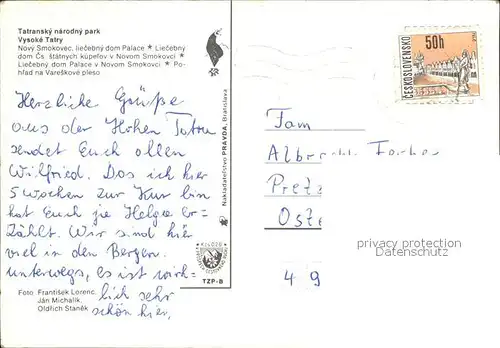 Tatranský národný park
Vysoké Tatry
Nový Smokovec, liečebný dom Palace ★ Liečebný
dom Čs štátnych kúpeľov v Novom Smokovci ★
Liečebný dom Palace v Novom Smokovci ★ Po-
hľad na Vareškové pleso
Herzliche Grüße
aus der Hohen Tatra
sendet Euch allen
Wilfried. Das ich hier
5 Wochen zur Kur bin
hat Euch ja Helga er-
zählt. Wir sind hier
viel in den Bergen
unterwegs, es ist wirk-
lich sehr
schön hier,
Foto: František Lorenc,
Ján Michalík,
Oldřich Staněk
Nakladateľstvo PRAVDA, Bratislava
TZP-B
ČESKOSLOVENSKO
50h
Fam
Albrecht
Pretz
Oste
privacy protection
Datenschutz
49